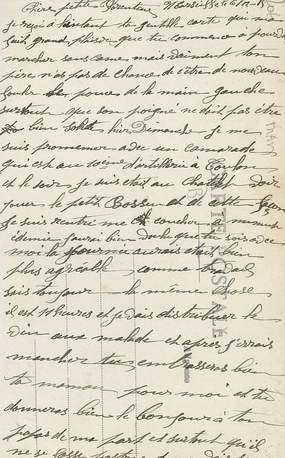 Chère petite Laurentine Marseille le 6/12/15
je reçois à l'instant ta gentille carte qui m'a
fait grand plaisir que tu commence a pouvoir
marcher sans came mais vraiment ton
père n'as pas de chance de s'être de nouveau
foulé le pouce de la main gauche
surtout que son poigné ne doit pas être
bien solide hier Dimanche je me
suis promener avec un camarade
qui est au 10ème d'artillerie à Toulon
et le soir je suis était au Chatelet voir
jouer le petit Bossu et de cette façon
je suis rentré me coucher a minuit
et demie j'aurai bien voulu que tu sois avec
moi la journée aurais était bien
plus agréable comme travail
sais toujour la même chose
il est 10 heures et je vais distribuer le
vin aux malade et apres j'irrais
mancher tu embrasseras bien
ta maman pour moi et tu
donneras bien le bonjour à ton
papa de ma part et surtout qu'il
ne se casse
CARTE POSTALE